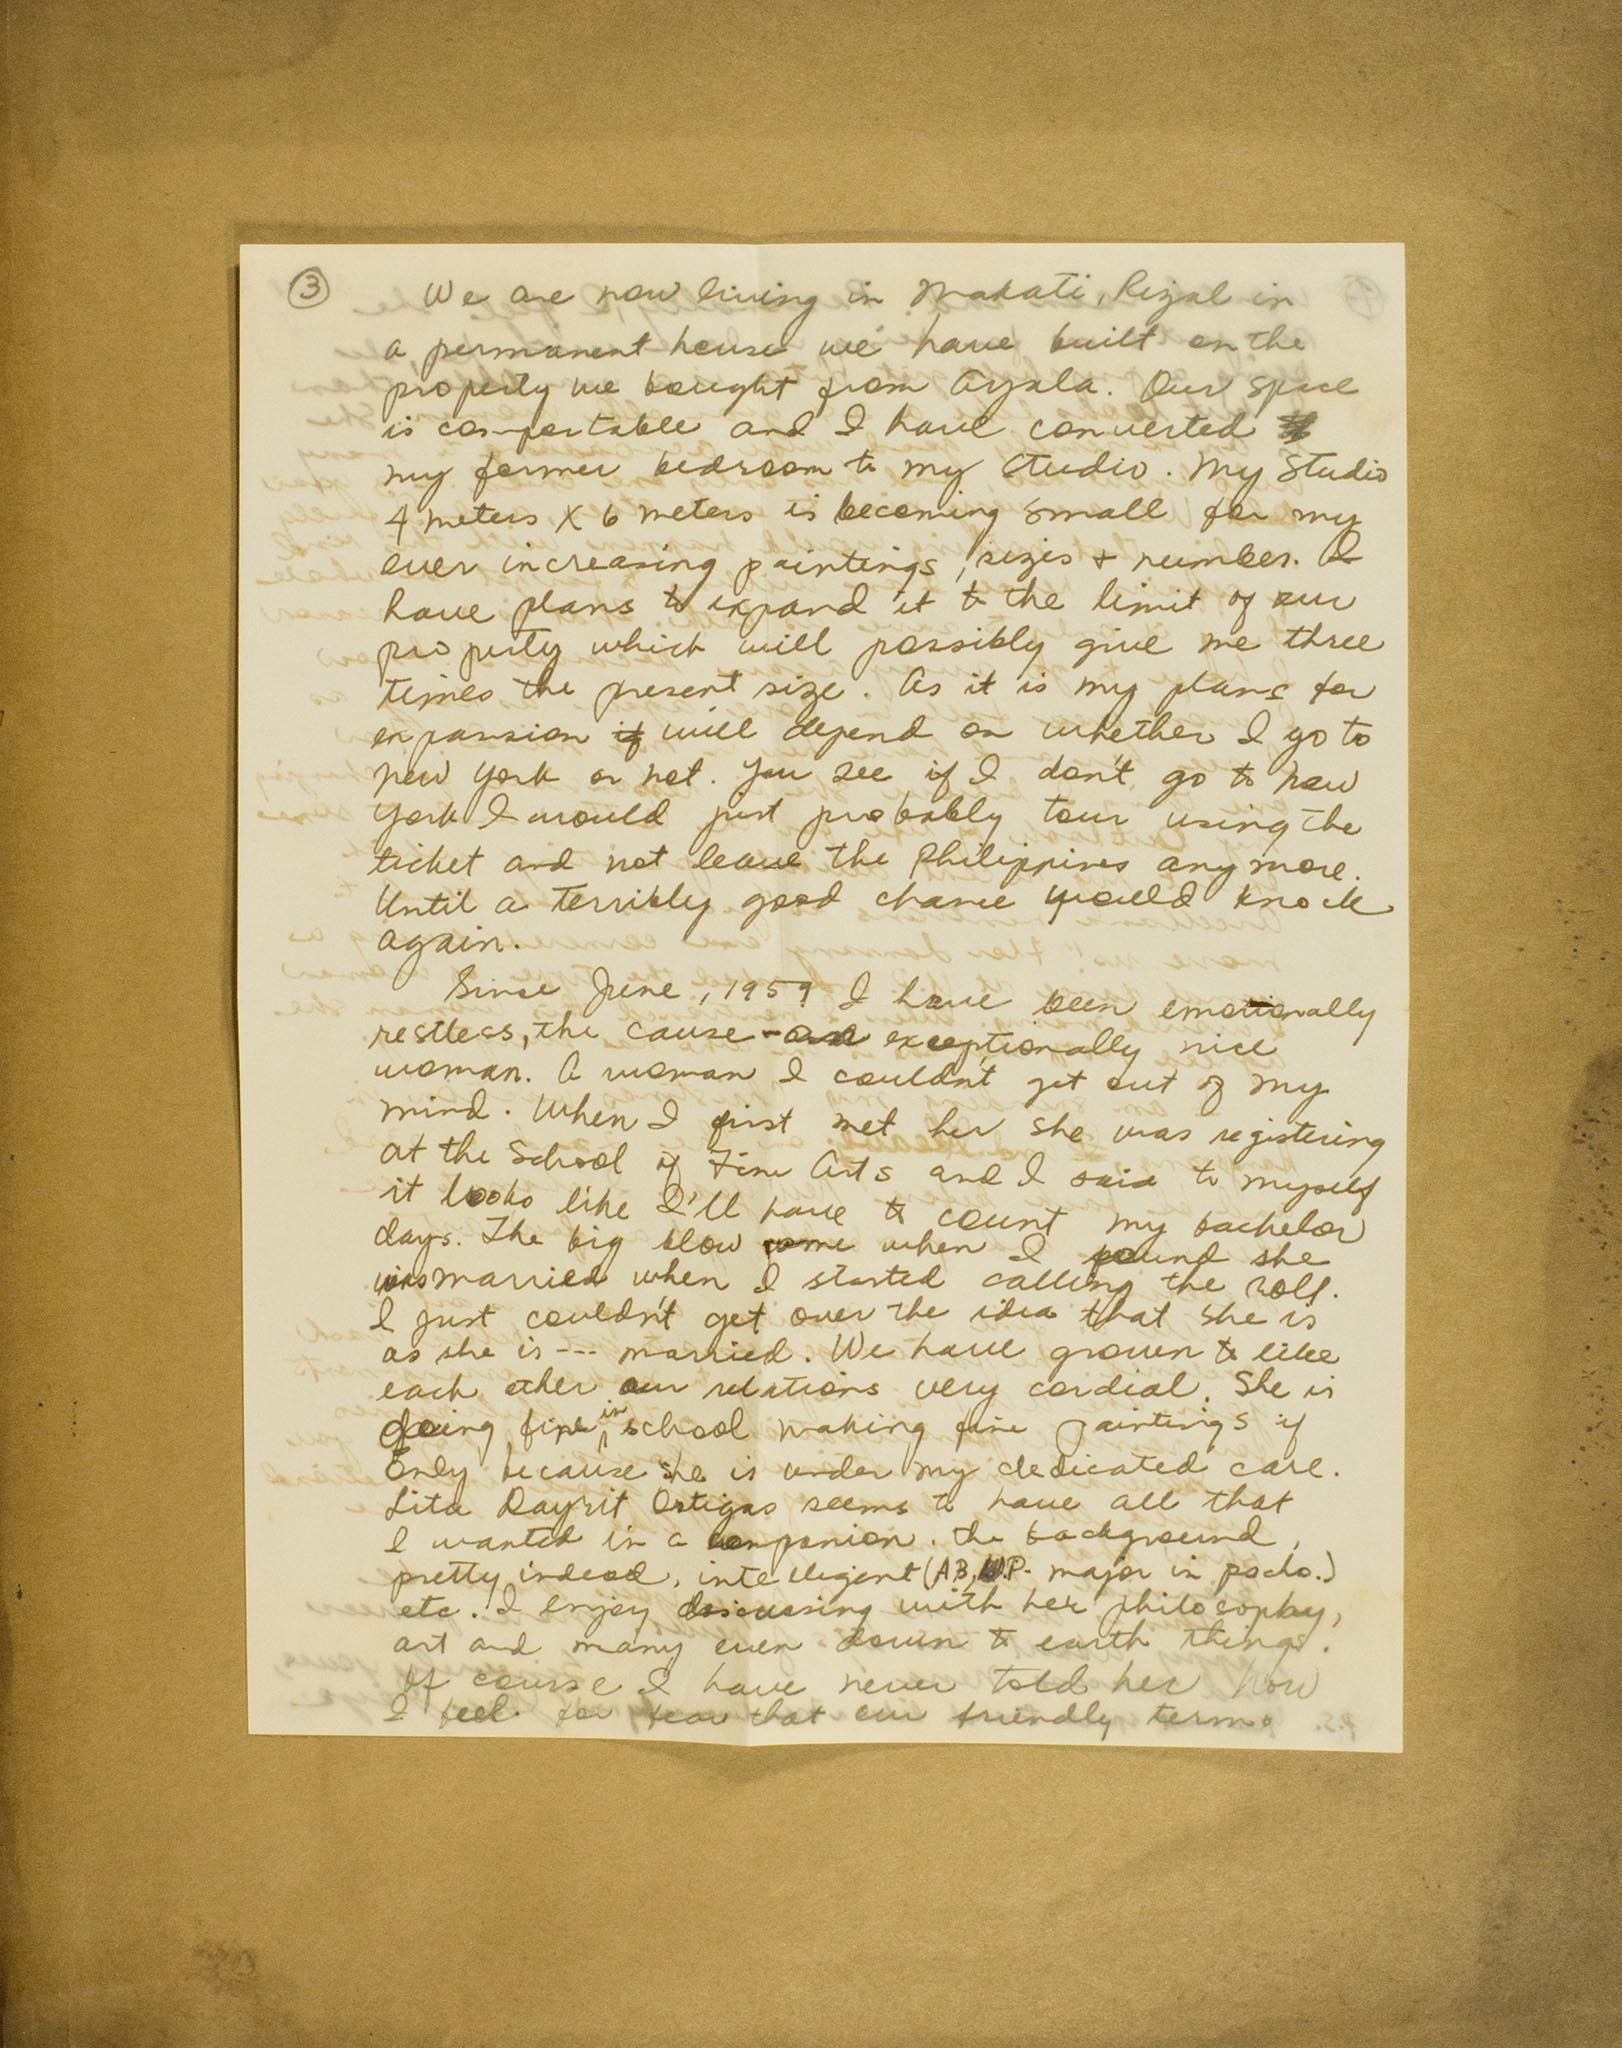 ③
We are now living in Makati, Rizal in
a permanent house we have built on the
property we bought from Ayala. Our space
is comfortable and I have converted
my former bedroom to my studio. My Studio
4 meters X 6 meters is becoming small for my
ever increasing paintings, sizes + number. I
have plans to expand it to the limit of our
property which will possibly give me three
times the present size. As it is my plans for
expansion if will depend on whether I go to
New York or not. You see if I don't go to New
York I would just probably tour using the
ticket and not leave the Philippines any more.
Until a terribly good chance would knock
again.
Since June, 1959 I have been emotionally
restless, the cause - an exceptionally nice
woman. A woman I couldn't get out of my
mind. When I first met her she was registering
at the School of Fine Arts and I said to myself
it looks like I'll have to count my bachelor
days. The big blow came when I found she
was married when I started calling the roll.
I just couldn't get over the idea that she is
as she is --- married. We have grown to like
each other our relations very cordial. She is
doing fine in school making fine paintings if
only because she is under my dedicated care.
Lita Dayrit Ortigas seems to have all that
I wanted in a companion. The background,
pretty indeed, intelligent (AB, U.P. - major in pscho.)
etc. I enjoy discussing with her philosophy,
art and many even down to earth things.
Of course I have never told her how
I feel for fear that our friendly terms